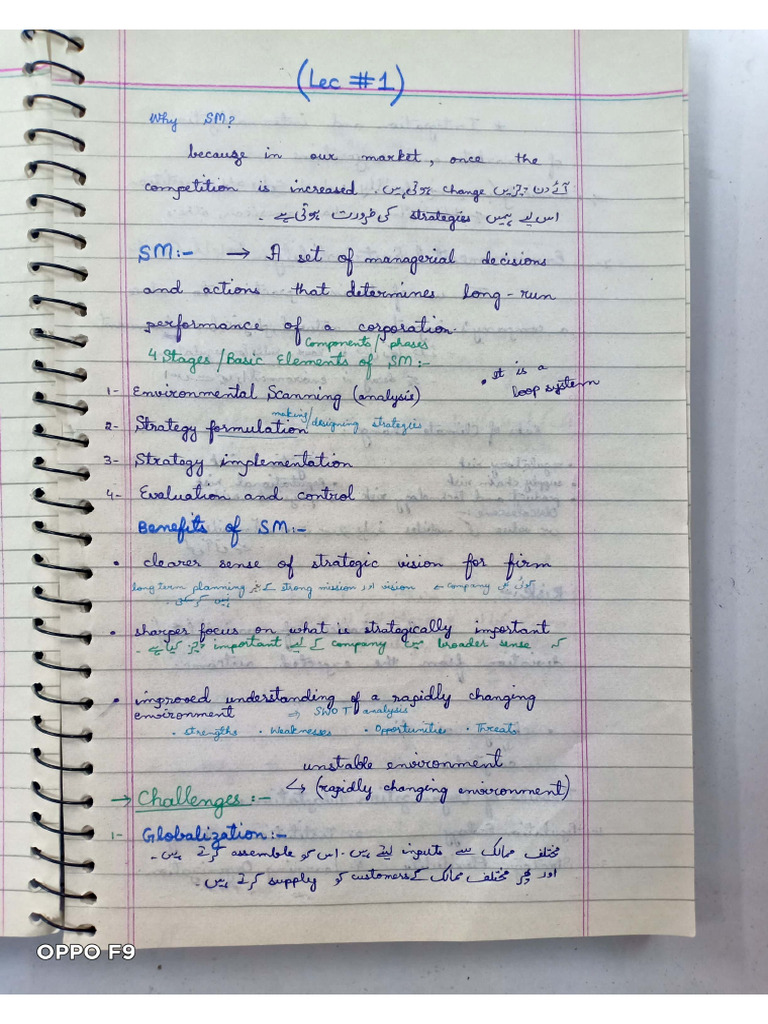 (Lec #1)
Why SM?
because in our market, once the
competition is increased آئے دن چیزیں change ہوتی ہیں۔
اس لیے ہمیں strategies کی ضرورت ہوتی ہے۔
SM:- → A set of managerial decisions
and actions that determines long-run
performance of a corporation.
Components/phases
4 Stages/Basic Elements of SM:-
• It is a
loop system
1- Environmental Scanning (analysis)
making/designing strategies
2- Strategy formulation
3- Strategy implementation
4- Evaluation and control
Benefits of SM:-
• clearer sense of strategic vision for firm
کوئی بھی company vision اور strong mission کے بغیر long term planning
نہیں کر سکتی۔
• sharper focus on what is strategically important
کہ broader sense میں company کے لیے important چیز کیا ہے۔
• improved understanding of a rapidly changing
environment ⇒ SWOT analysis
• strengths • Weaknesses • Opportunities • Threats
unstable environment
↳ (rapidly changing environment)
→ Challenges:-
1- Globalization:-
مختلف ممالک سے inputs لیتے ہیں۔ اس کو assemble کرتے ہیں۔
اور پھر مختلف ممالک کے customers کو supply کرتے ہیں۔
OPPO F9